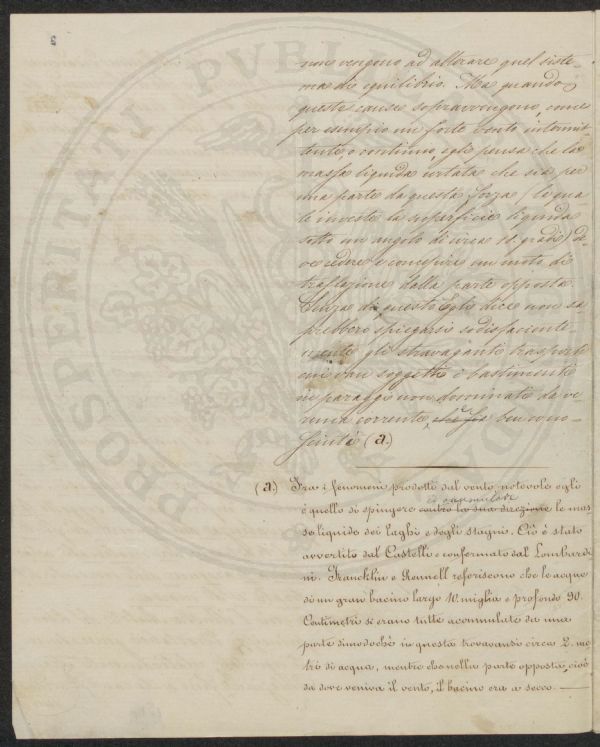 2
PROSPERITATI PVBLICAE
non vengono ad alterare quel siste-
ma di equilibrio. Ma quando
queste cause sopravvengono, come
per esempio un forte vento intermit-
tente o continuo, egli pensa che la
massa liquida urtata che sia per
una parte da questa forza (la qua-
le investe la superficie liquida
sotto un angolo di circa 18. gradi) de-
ve cedere e concepire un moto di
traslazione dalla parte opposta.
Senza di questo Egli dice non sa-
prebbero spiegarsi sodisfacente-
mente gli stravaganti trasporti
cui van soggetti i bastimenti
in paraggi non dominati da ve-
runa corrente che sia ben cono-
sciuta (a.)
(a.) Fra i fenomeni prodotti dal vento notevole egli
ed accumulare
è quello di spingere contro la sua direzione le mas-
se liquide dei laghi e degli stagni. Ciò è stato
avvertito dal Castelli e confermato dal Lombardi-
ni. Francklin e Rennell riferiscono che le acque
di un gran bacino largo 10. miglia e profondo 90.
Centimetri si erano tutte accumulate da una
parte dimodochè in questa trovavansi circa 2. me-
tri di acqua, mentre che nella parte opposta, cioè
da dove veniva il vento, il bacino era a secco.